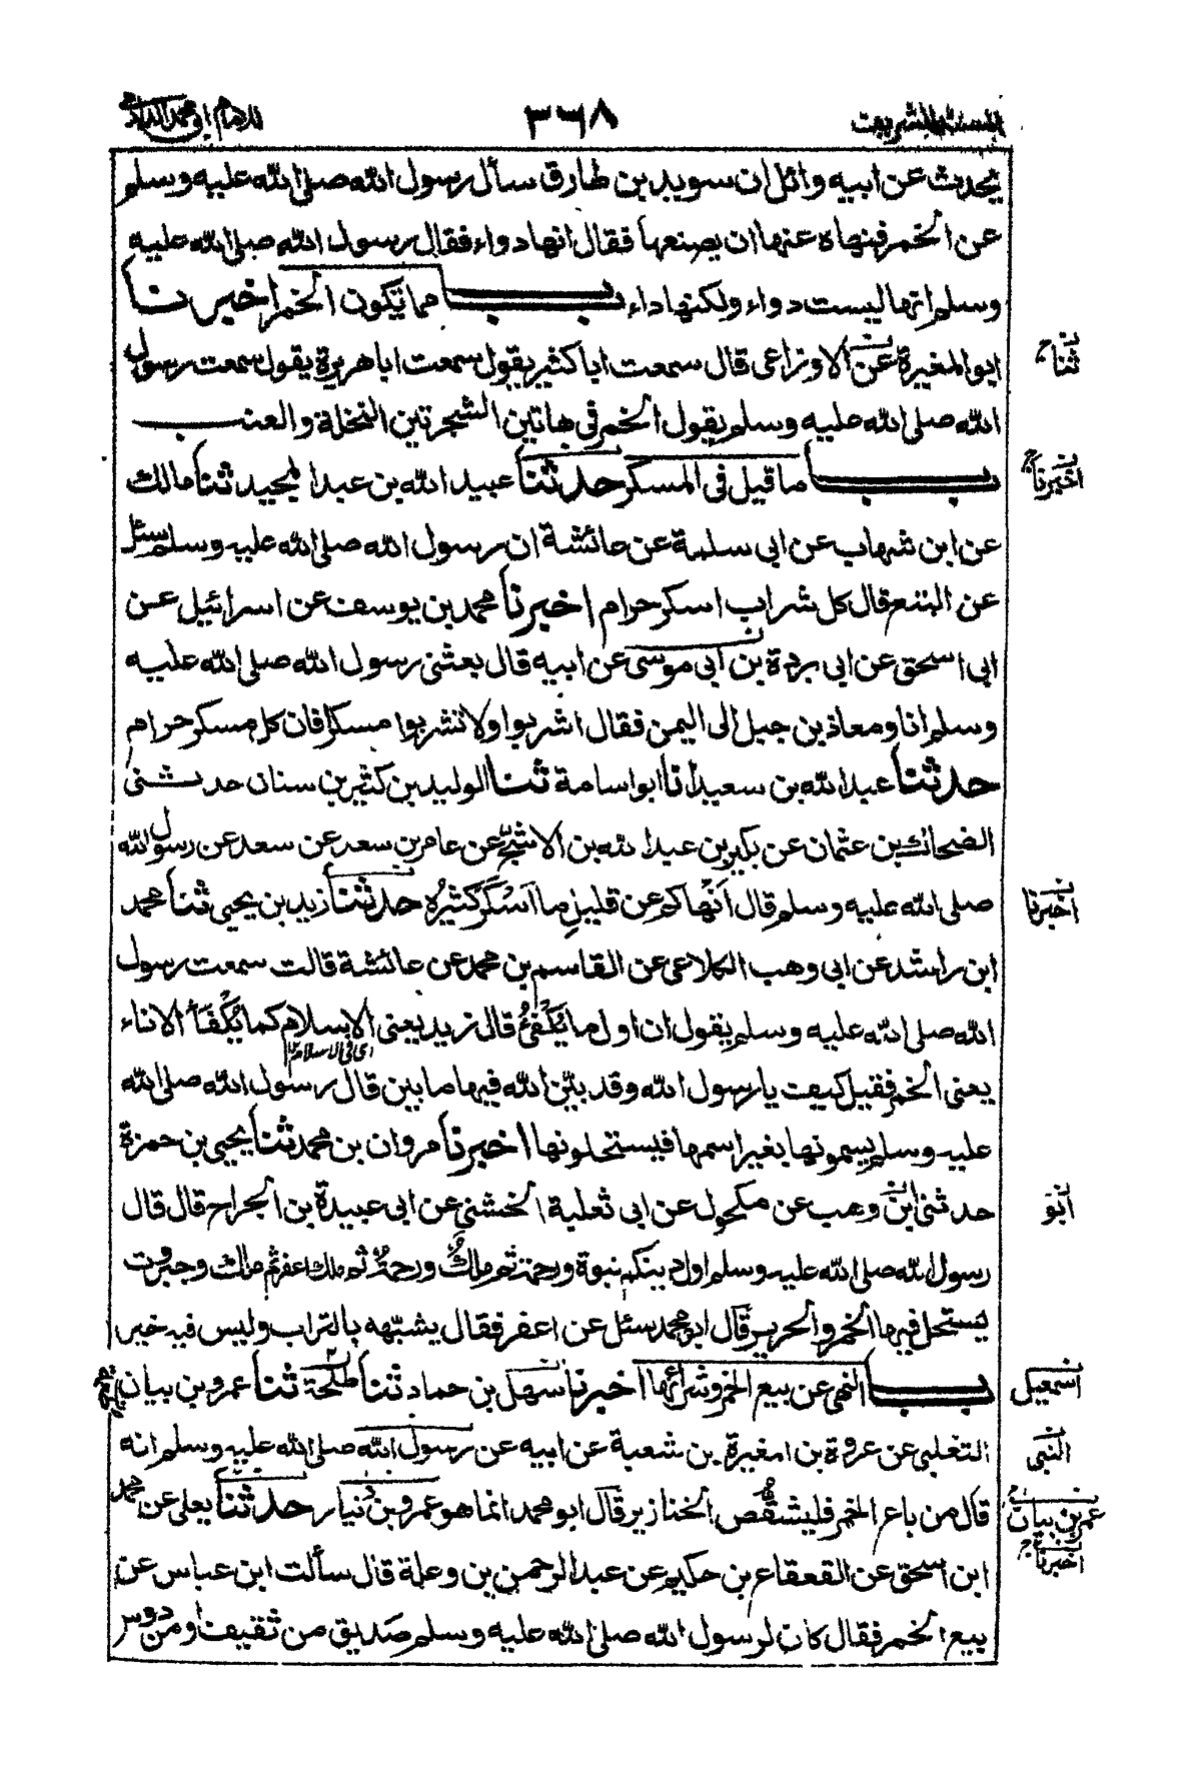 المسند الشريف ٣٦٨ للامام ابى محمد الدارمى
يحدث عن ابيه وائل ان سويد بن طارق سأل رسول الله صلى الله عليه وسلم
عن الخمر فنهاه عنها ان يصنعها فقال انها دواء فقال رسول الله صلى الله عليه
وسلم انها ليست دواء ولكنها داء باب مما تكون الخمر اخبرنا
ابو المغيرة عن الاوزاعى قال سمعت ابا كثير يقول سمعت ابا هريرة يقول سمعت رسول
ثنا
الله صلى الله عليه وسلم يقول الخمر فى هاتين الشجرتين النخلة والعنب
باب ما قيل فى المسكر حدثنا عبيد الله بن عبد المجيد ثنا مالك
اخبرنا
عن ابن شهاب عن ابى سلمة عن عائشة ان رسول الله صلى الله عليه وسلم سئل
عن البتع قال كل شراب اسكر حرام اخبرنا محمد بن يوسف عن اسرائيل عن
ابى اسحق عن ابى بردة بن ابى موسى عن ابيه قال بعثنى رسول الله صلى الله عليه
وسلم انا ومعاذ بن جبل الى اليمن فقال اشربوا ولا تشربوا مسكرا فان كل مسكر حرام
حدثنا عبد الله بن سعيد انا ابو اسامة ثنا الوليد بن كثير بن سنان حدثنى
الضحاك بن عثمان عن بكير بن عبد الله بن الاشج عن عامر بن سعد عن سعد عن رسول الله
صلى الله عليه وسلم قال أنهاكم عن قليلِ ما أسْكَرَ كثيرُه حدثنا زيد بن يحيى ثنا محمد
اخبرنا
ابن راشد عن ابى وهب الكلاعى عن القاسم بن محمد عن عائشة قالت سمعت رسول
الله صلى الله عليه وسلم يقول ان اول ما يُكْفَئُ قال زيد يعنى الاسلام كما يُكْفَأ الاناء
اى فى الاسلام
يعنى الخمر فقيل كيف يا رسول الله وقد بيّن الله فيها ما بين قال رسول الله صلى الله
عليه وسلم يسمونها بغير اسمها فيستحلونها اخبرنا مروان بن محمد ثنا يحيى بن حمزة
حدثنى ابن وهب عن مكحول عن ابى ثعلبة الخشنى عن ابى عبيدة بن الجراح قال قال
ابو
رسول الله صلى الله عليه وسلم اول دينكم نبوة ورحمة ثم ملكٌ ورحمةٌ ثم ملك اعفر ثم ملك وجبروت
يستحل فيها الخمر والحرير قال ابو محمد سئل عن اعفر فقال يشبّهه بالتراب وليس فيه خير
باب النهى عن بيع الخمر وشرائها اخبرنا سهل بن حماد ثنا طلحة ثنا عمرو بن بيان
اسمعيل
التغلبى عن عروة بن المغيرة بن شعبة عن ابيه عن رسول الله صلى الله عليه وسلم انه
النبى
قال من باع الخمر فليشقّص الخنازير قال ابو محمد انما هو عمرو بن دينار حدثنا يعلى عن محمد
عمر بن بيان
ابن اسحق عن القعقاع بن حكيم عن عبد الرحمن بن وعلة قال سألت ابن عباس عن
اخبرنا
بيع الخمر فقال كان لرسول الله صلى الله عليه وسلم صَديق من ثقيف او من دوس